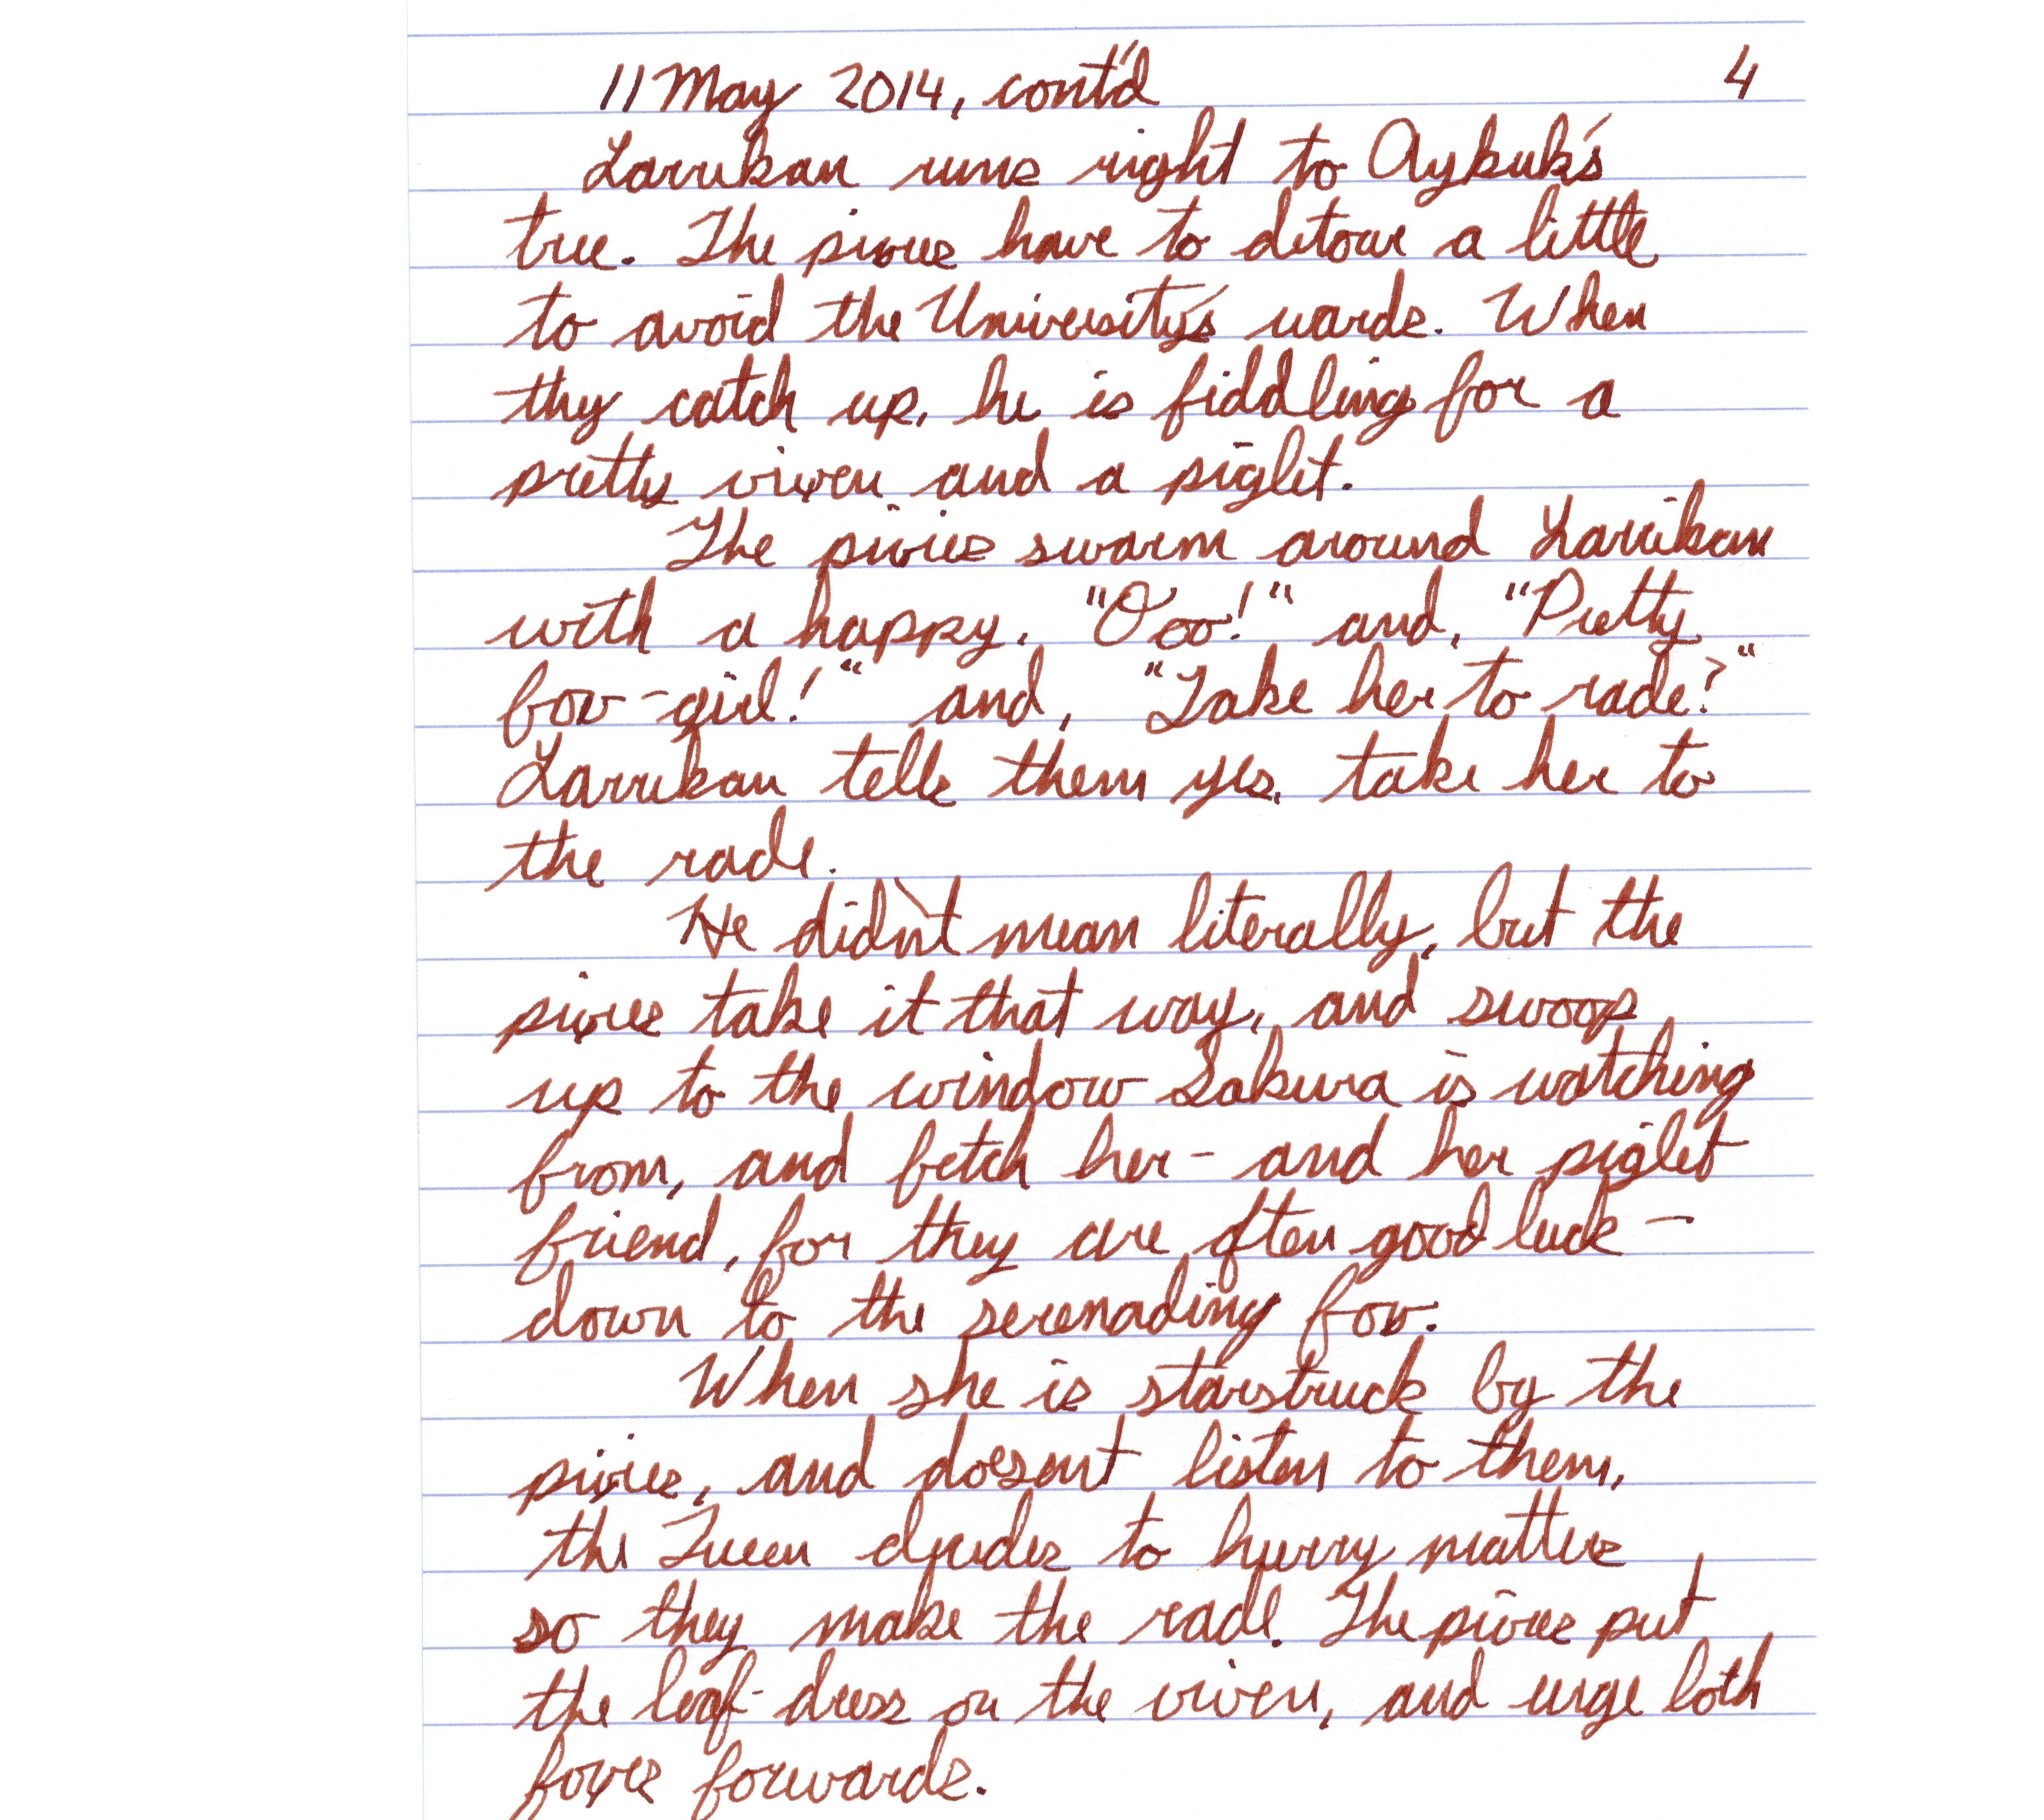 11 May 2014, cont'd 4
Larrikan runs right to Aykuk's
tree. The pixies have to detour a little
to avoid the University's wards. When
they catch up, he is fiddling for a
pretty vixen and a piglet.
The pixies swarm around Larrikan
with a happy, "Ooo!" and, "Pretty
fox-girl!" and, "Take her to rade?"
Larrikan tells them yes, take her to
the rade.
He didn't mean literally, but the
pixies take it that way, and swoop
up to the window Sakura is watching
from, and fetch her - and her piglet
friend, for they are often good luck -
down to the serenading fox.
When she is starstruck by the
pixies, and doesn't listen to them,
the Queen decides to hurry matters
so they make the rade. The pixies put
the leaf-dress on the vixen, and urge both
foxes forwards.